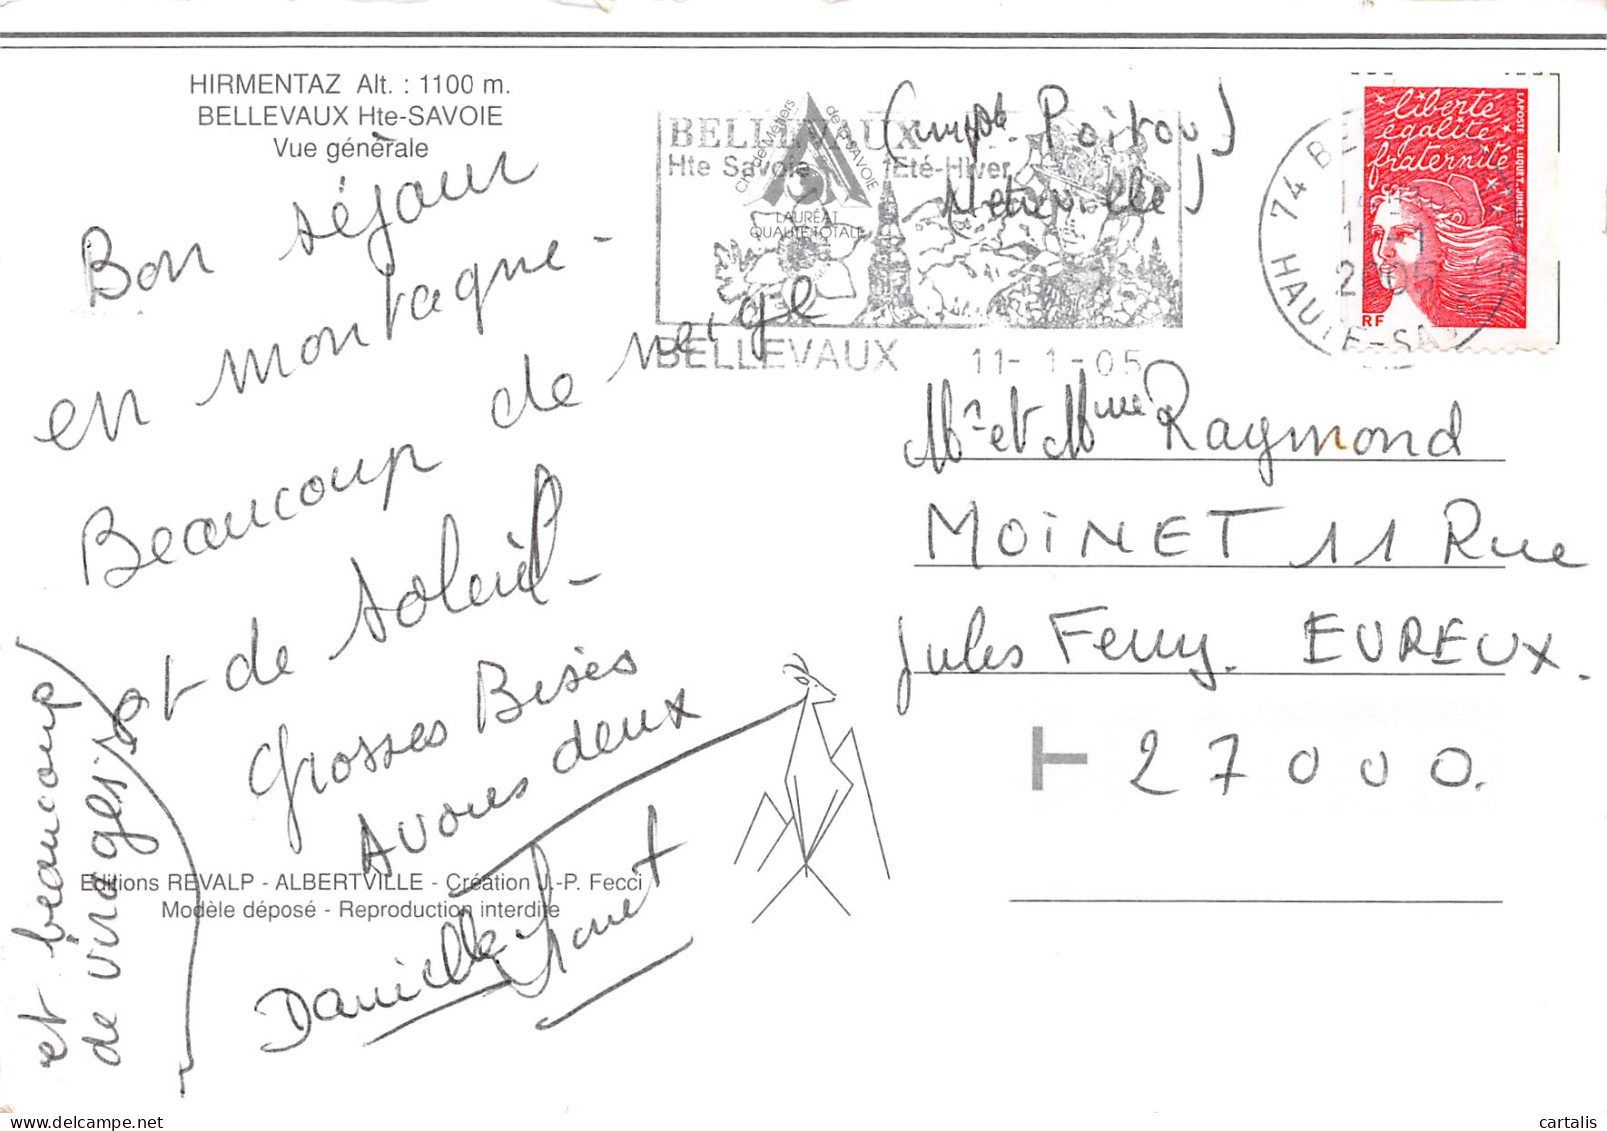 HIRMENTAZ Alt. : 1100 m.
BELLEVAUX Hte-SAVOIE
Vue générale
Bon séjour
en montagne -
Beaucoup de neige
et de soleil -
Grosses Bises
A vous deux
Danielle
et beaucoup
de virages
Editions REVALP - ALBERTVILLE - Création J.-P. Fecci
Modèle déposé - Reproduction interdite
BELLEVAUX
Hte Savoie Eté-Hiver
Ch. de Métiers de la SAVOIE
LAURÉAT
QUALITÉ TOTALE
BELLEVAUX 11-1-05
Poitou)
74 BE
2005
HAUTE-SA
liberté
égalité
fraternité
LA POSTE LUQUET-JUMELET
RF
Mr et Mme Raymond
MOINET 11 Rue
Jules Ferry. EVREUX.
27000.
cartalis